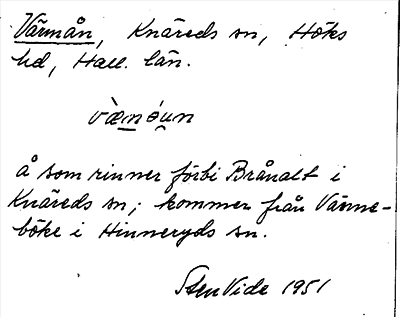 Värmån, Knäreds sn, Höks
hd, Hall. län.
Å som rinner förbi Brånalt i
Knäreds sn; kommer från Värme-
böke i Hinneryds sn.
Sten Vide 1951